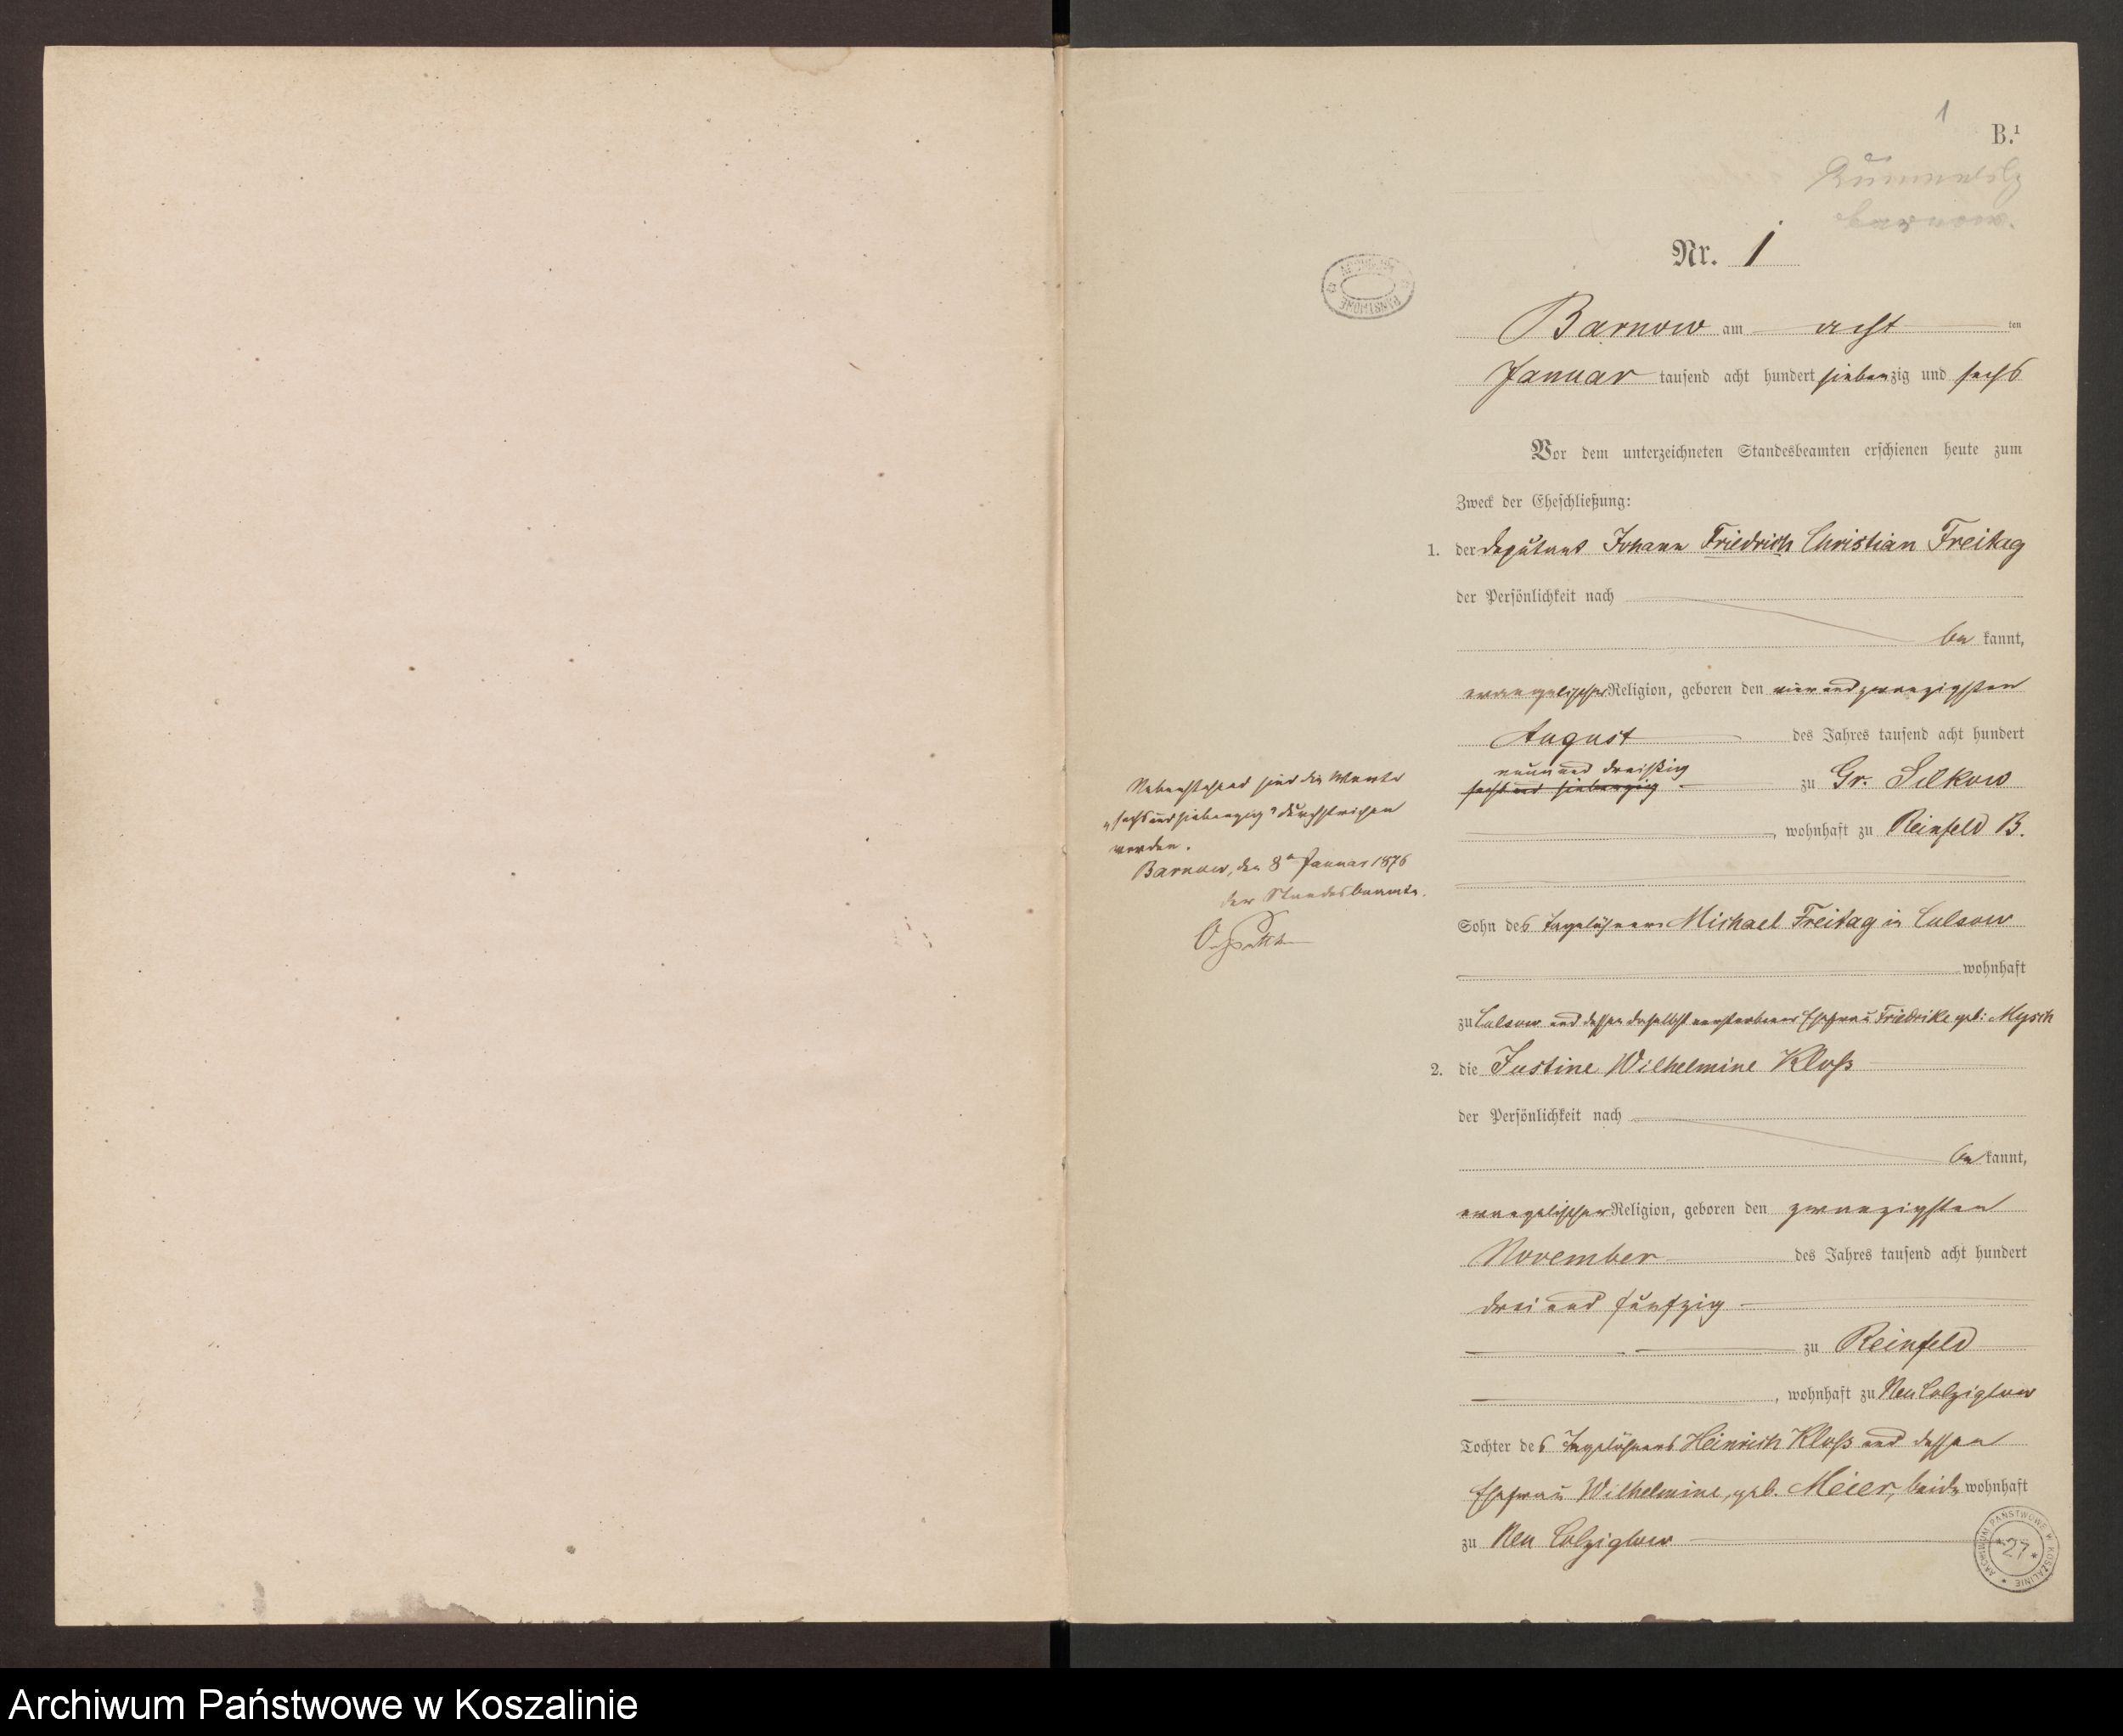 1
B.¹
Barnow.
Nr. 1
ARCHIWUM PAŃSTWOWE
Barnow am acht ten
Januar tausend acht hundert siebenzig und sechs
Vor dem unterzeichneten Standesbeamten erschienen heute zum
Zweck der Eheschließung:
1. der Deputant Johann Friedrich Christian Freitag
der Persönlichkeit nach
be kannt,
evangelischer Religion, geboren den vierundzwanzigsten
August des Jahres tausend acht hundert
neun und dreißig
sechs und siebenzig zu Gr. Silkow
, wohnhaft zu Reinfeld B.
Nebenstehend sind die Worte
„sechs und siebenzig" durchstrichen
worden.
Barnow, den 8ten Januar 1876
der Standesbeamte.
Sohn des Tagelöhners Michael Freitag in Culsow
wohnhaft
zu Culsow und dessen daselbst verstorbener Ehefrau Friedrike geb: Mysch
2. die Justine Wilhelmine Kloß
der Persönlichkeit nach
be kannt,
evangelischer Religion, geboren den zwanzigsten
November des Jahres tausend acht hundert
drei und fünfzig
zu Reinfeld
, wohnhaft zu Neu Colziglow
Tochter des Tagelöhners Heinrich Kloß und dessen
Ehefrau Wilhelmine, geb. Meier, beide wohnhaft
zu Neu Colziglow
ARCHIWUM PAŃSTWOWE W KOSZALINIE * 27 *
Archiwum Państwowe w Koszalinie